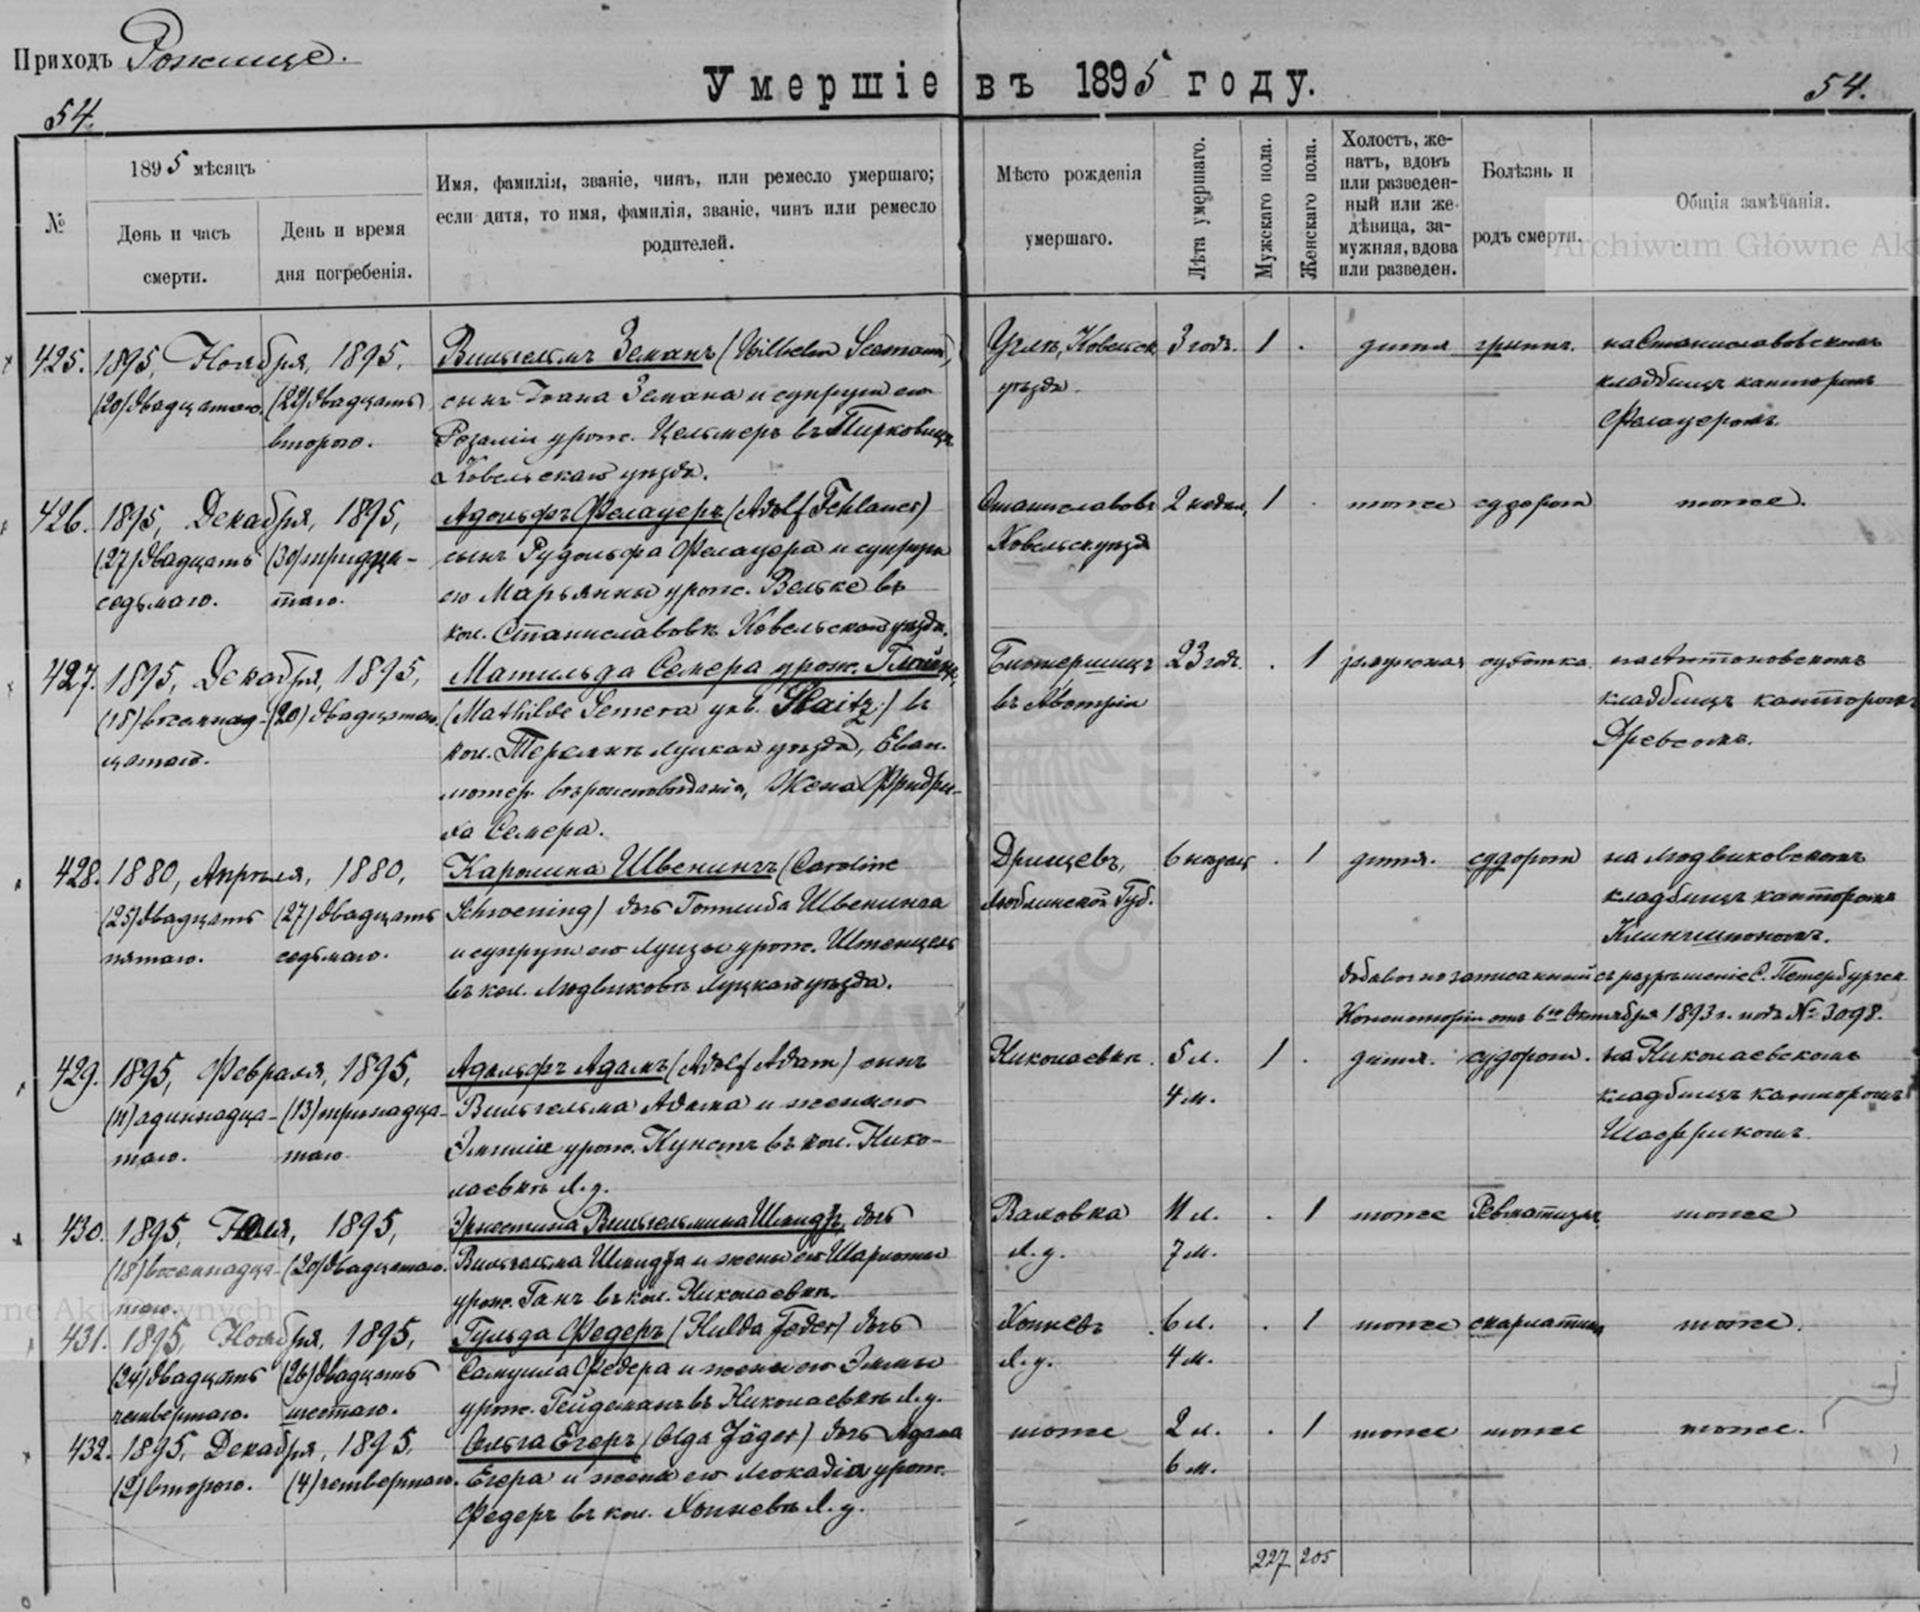 Приходъ Рожище.
Умершіе въ 1895 году.
54.
54.
№
1895 мѣсяцъ
День и часъ смерти.
День и время дня погребенія.
Имя, фамилія, званіе, чинъ, или ремесло умершаго;
если дитя, то имя, фамилія, званіе, чинъ или ремесло
родителей.
Мѣсто рожденія
умершаго.
Лѣта умершаго.
Мужскаго пола.
Женскаго пола.
Холостъ, же-
натъ, вдовъ
или разведен-
ный или же
дѣвица, за-
мужняя, вдова
или разведен.
Болѣзнь и
родъ смерти.
Общія замѣчанія.
Archiwum Główne Ak
425. 1895, Ноября, 1895, Вильгельмъ Земанъ (Wilhelm Seemann) Ковельск. 3 годъ. 1 . дитя гриппъ. на Станиславовскомъ
(20) двадцатаго. (22) двадцать сынъ Ивана Земана и супруги его уѣзда. кладбищѣ канторомъ
втораго. Розаліи урож. Цельмеръ въ Фелауеромъ.
Ковельскаго уѣзда.
426. 1895, Декабря, 1895, Адольфъ Фелауеръ (Adolf Fehlauer) Станиславовъ 2 недѣл. 1 . тоже судороги тоже.
(27) двадцать (30) тридца- сынъ Рудольфа Фелауера и супруги Ковельск. уѣзда
седьмаго. таго. его Марьянны урож. Вельке въ
кол. Станиславовкѣ Ковельскаго уѣзда.
427. 1895, Декабря, 1895, Матильда Семера урож. 23 годъ. . 1 замужная на Антоновскомъ
(18) восемнад- (20) двадцатаго. (Mathilde Semera въ въ Австріи кладбищѣ канторомъ
цатаго. кол. Луцкаго уѣзда, Еван. Древсомъ.
лютер. вѣроисповѣданія, Жена Фридри-
ха Семера.
428. 1880, Апрѣля, 1880, Каролина Швенингъ (Caroline 6 . 1 дитя. судороги на Людвиковскомъ
(25) двадцать (27) двадцать Schwening) дочь Готлиба Швенинга Люблинской Губ. кладбищѣ канторомъ
пятаго. седьмаго. и супруги его Луизы урож. Штенцель
въ кол. Людвиковкѣ Луцкаго уѣзда.
записанный съ разрѣшенія С. Петербургск.
Консисторіи отъ 6го Октября 1893 г. подъ № 3098.
429. 1895, Февраля, 1895, Адольфъ Адамъ (Adolf Adam) сынъ Николаевка. 5 л. 1 . дитя. судороги. на Николаевскомъ
(11) одиннадца- (13) тринадца- Вильгельма Адама и жены его 4 м. кладбищѣ канторомъ
таго. таго. Эмиліи урож. Кунстъ въ кол. Нико-
лаевкѣ Л. у.
430. 1895, Іюля, 1895, Эрнестина Вильгельмина Шмидтъ, дочь 11 л. . 1 тоже Ревматизмъ тоже
(18) восемнадца- (20) двадцатаго. Вильгельма Шмидта и жены его Шарлотты Л. у. 7 м.
таго. урож. Ганъ въ кол. Николаевкѣ.
431. 1895, Ноября, 1895, Гульда Федеръ (Hulda Feder) дочь Копчевъ 6 л. . 1 тоже скарлатина тоже.
(24) двадцать (26) двадцать Самуила Федера и жены его Эммы Л. у. 4 м.
четвертаго. шестаго. урож. Гейдеманъ въ Николаевкѣ Л. у.
432. 1895, Декабря, 1895. Ольга Егеръ (Olga Jäger) дочь Адама тоже 2 л. . 1 тоже тоже тоже.
(2) втораго. (4) четвертаго. Егера и жены его Леокадіи урож. 6 м.
Федеръ въ кол. Копчевѣ Л. у.
227 205